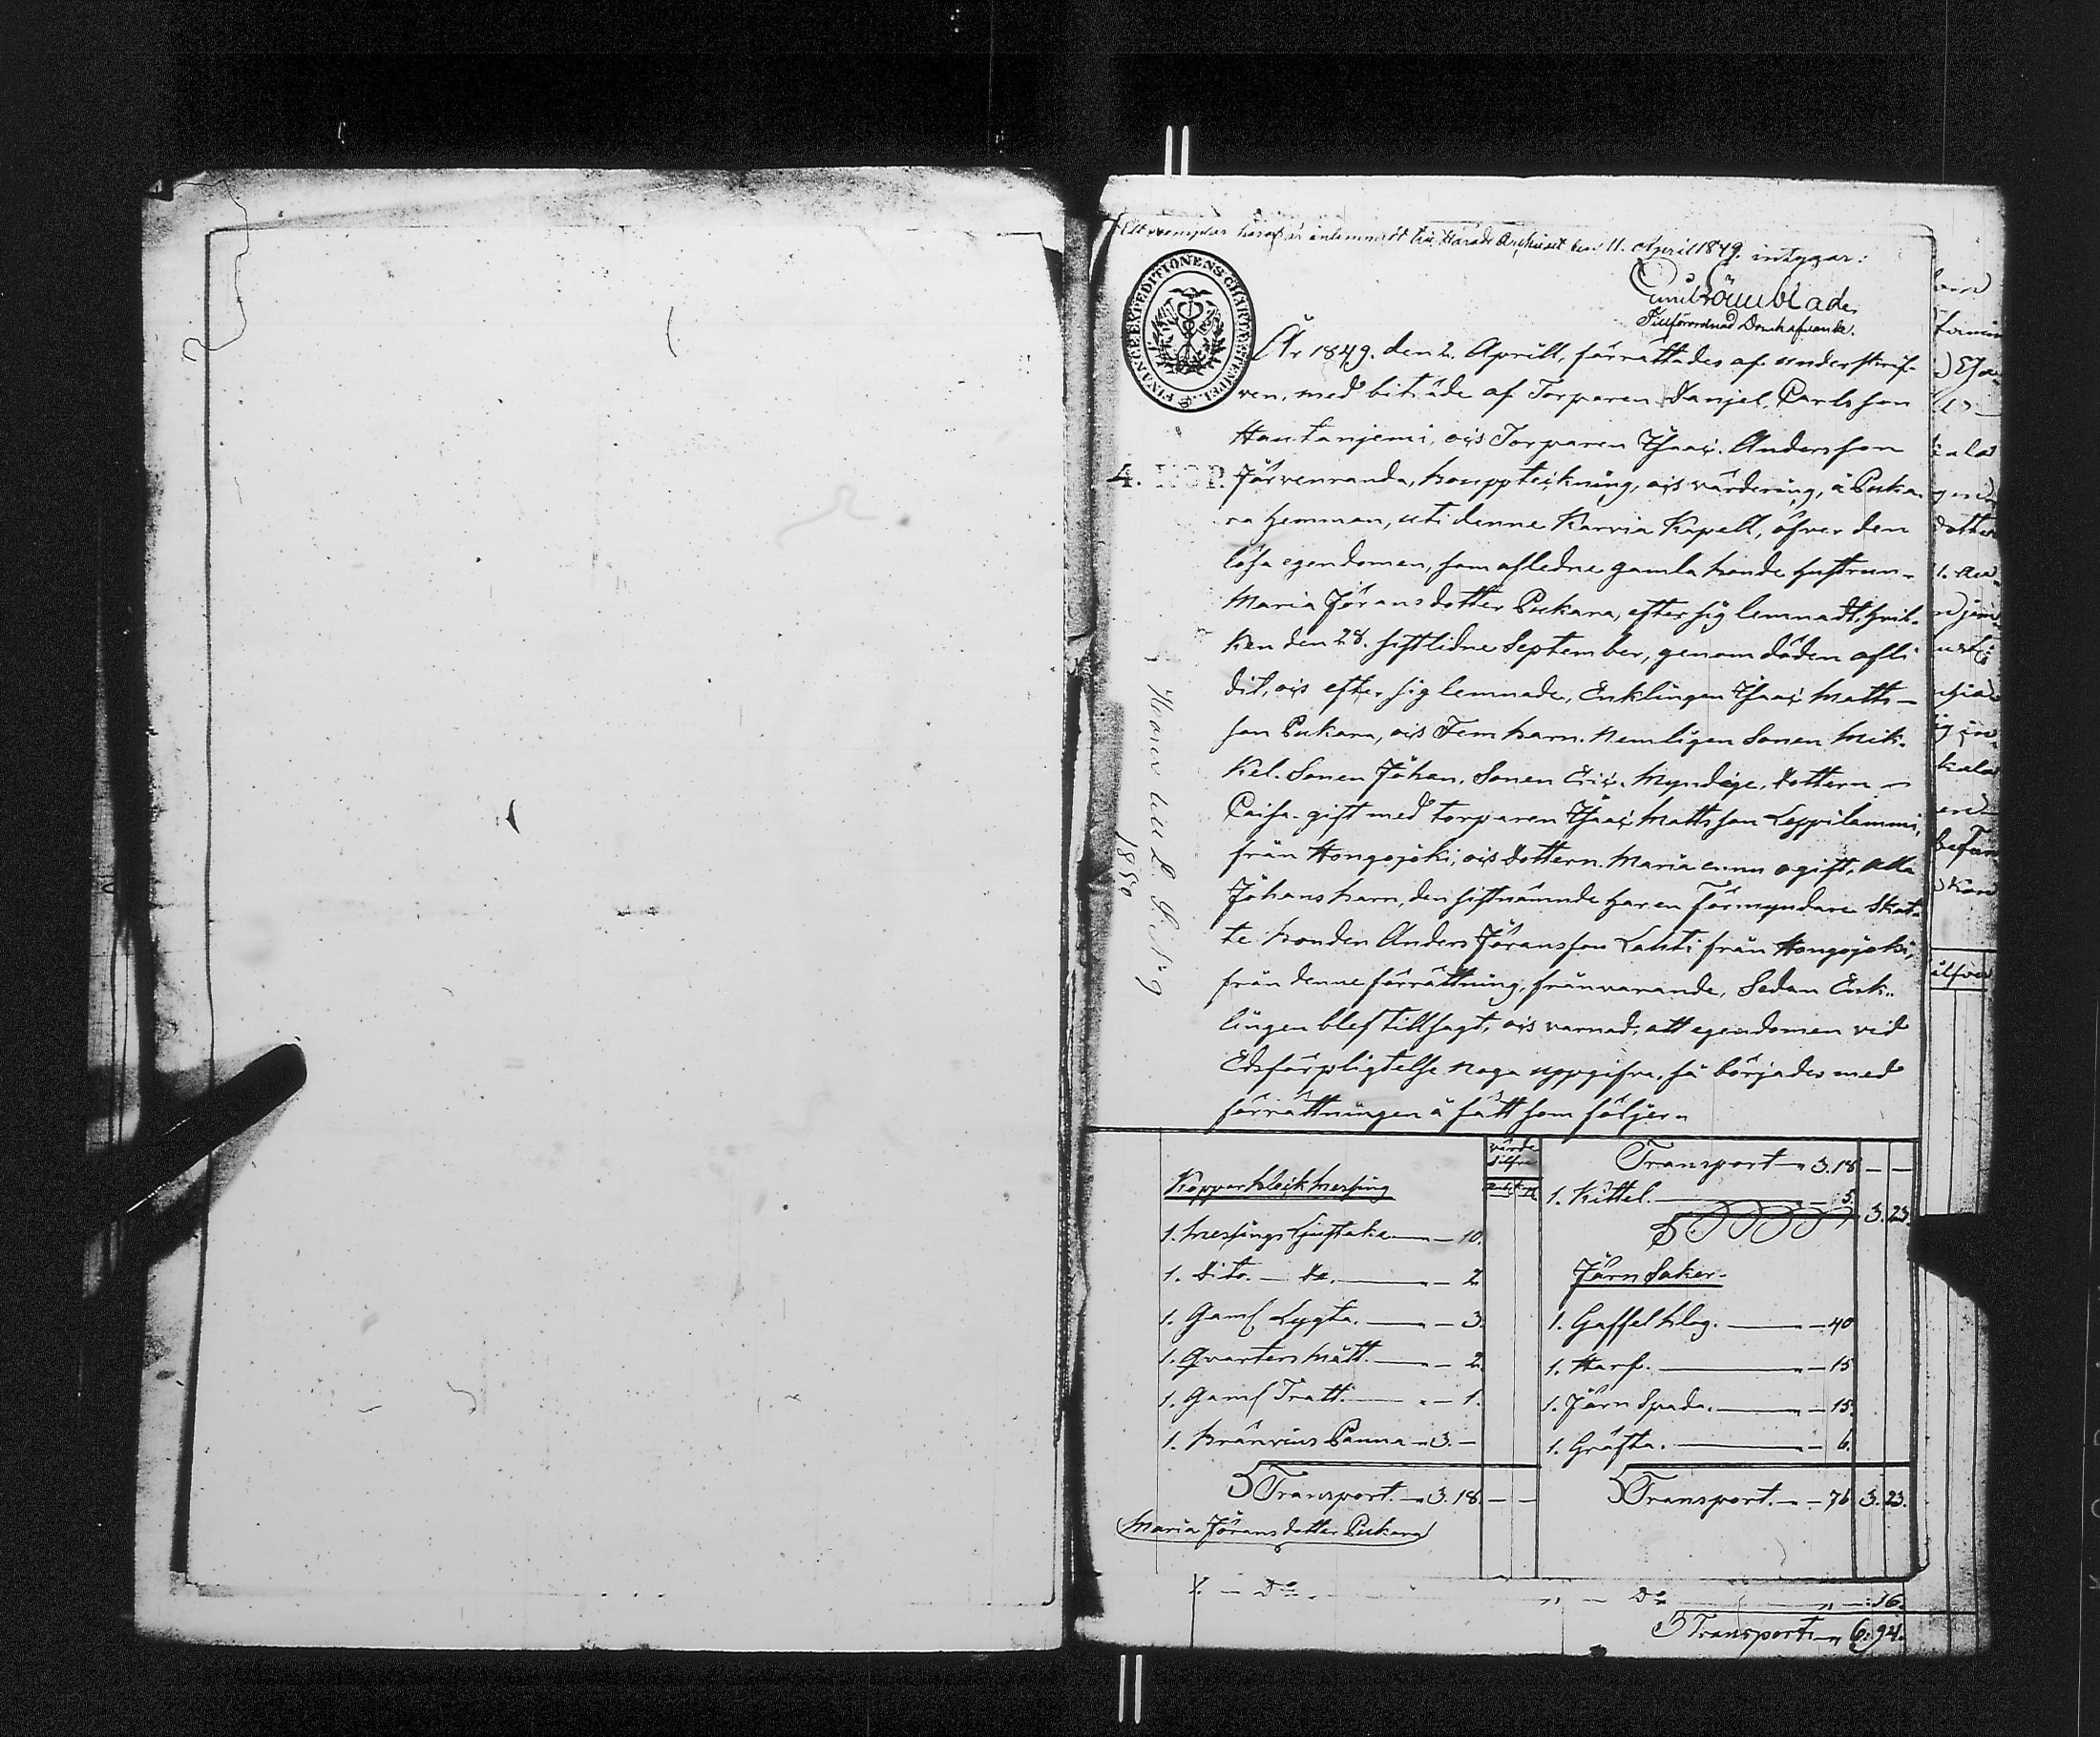 Ett exemplar häraf är inlemnadt till Härads Archivet den 11. April 1849. intygar:
Emil Lönnblad
Tillförordnad Domhafvande.
FINANCE EXPEDITIONENS CHARTÆ STEMPEL
4. KOP.
År 1849. den 2. Aprill, förrättades af underskrif-
ven, med biträde af Torparen Danjel Carlsson
Hautanjemi, och Torparen Isaac Andersson
Järvenranda, bouppteckning, och värdering, å Puka-
ra hemman, uti denne Karvia Kapell, öfver den
lösa egendomen, som afledne gamla bonde hustrun
Maria Jöransdotter Pukara, efter sig lemnadt, hvil-
ken den 28. sistledne September, genom döden afli-
dit, och efter sig lemnade, Enklingen Isaac Matts-
son Pukara, och Fem barn. Nemligen Sonen Mik-
kel. Sonen Johan. Sonen Eric. Myndige, dottern
Caisa. gift med torparen Isaac Mattsson Leppilammi,
från Hongojoki, och dottern. Maria ännu ogift, alla
Johans barn, den sistnämnde har en Förmyndare Skat-
te bonden Anders Jöransson Lahti från Hongojoki,
från denne förrättning, frånvarande, Sedan Enk-
lingen blef tillsagt, och varnad, att egendomen vid
Edsförpligtelse noga uppgifva, så börjades med
förrättningen å sätt som följer.
1850
värde
Silfver
Koppar bleck Messing
1. Messings Ljustake — 10.
1. Dito. — De. — 2
1. Gaml Lygta. — 3.
1. Qvarters Mått. — 2.
1. Gaml Tratt. — 1.
1. Bränvins Panna — 3. —
Transport. — 3. 18. — —
Maria Jöransdotter Pukara
Transport — 3. 18 — —
1. Kittel. — 5.
3. 23.
Järn Saker.
1. Gaffel Plog. — 40
1. Harf. — 15
1. Järn Spada. — 15.
1. Gräfta. — 6.
Transport. — 76 3. 23.
1. — Do — „ — Do „ — 16.
Transport „ 6. 94.